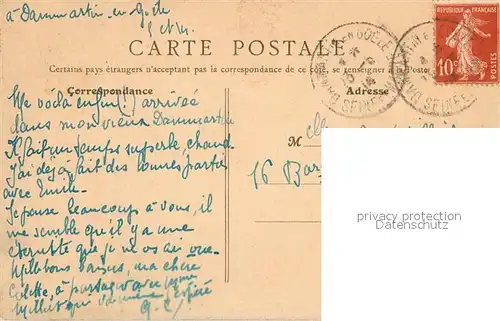 à Dammartin-en-Goële
S et M.
CARTE POSTALE
Certains pays étrangers n'acceptant pas la correspondance de ce côté, se renseigner à la Poste
Correspondance
Adresse
RÉPUBLIQUE FRANÇAISE
10c
POSTES
Me voilà enfin (!) arrivée
dans mon vieux Dammartin
Il fait un temps superbe, chaud
J'ai déjà fait des bonnes parties
avec Emile.
Je pense beaucoup à vous, il
me semble qu'il y a une
éternité que je ne vous ai vue
Mille bons baisers, ma chère
Colette, à partager avec
G. C.
M
16 Bar
privacy protection
Datenschutz